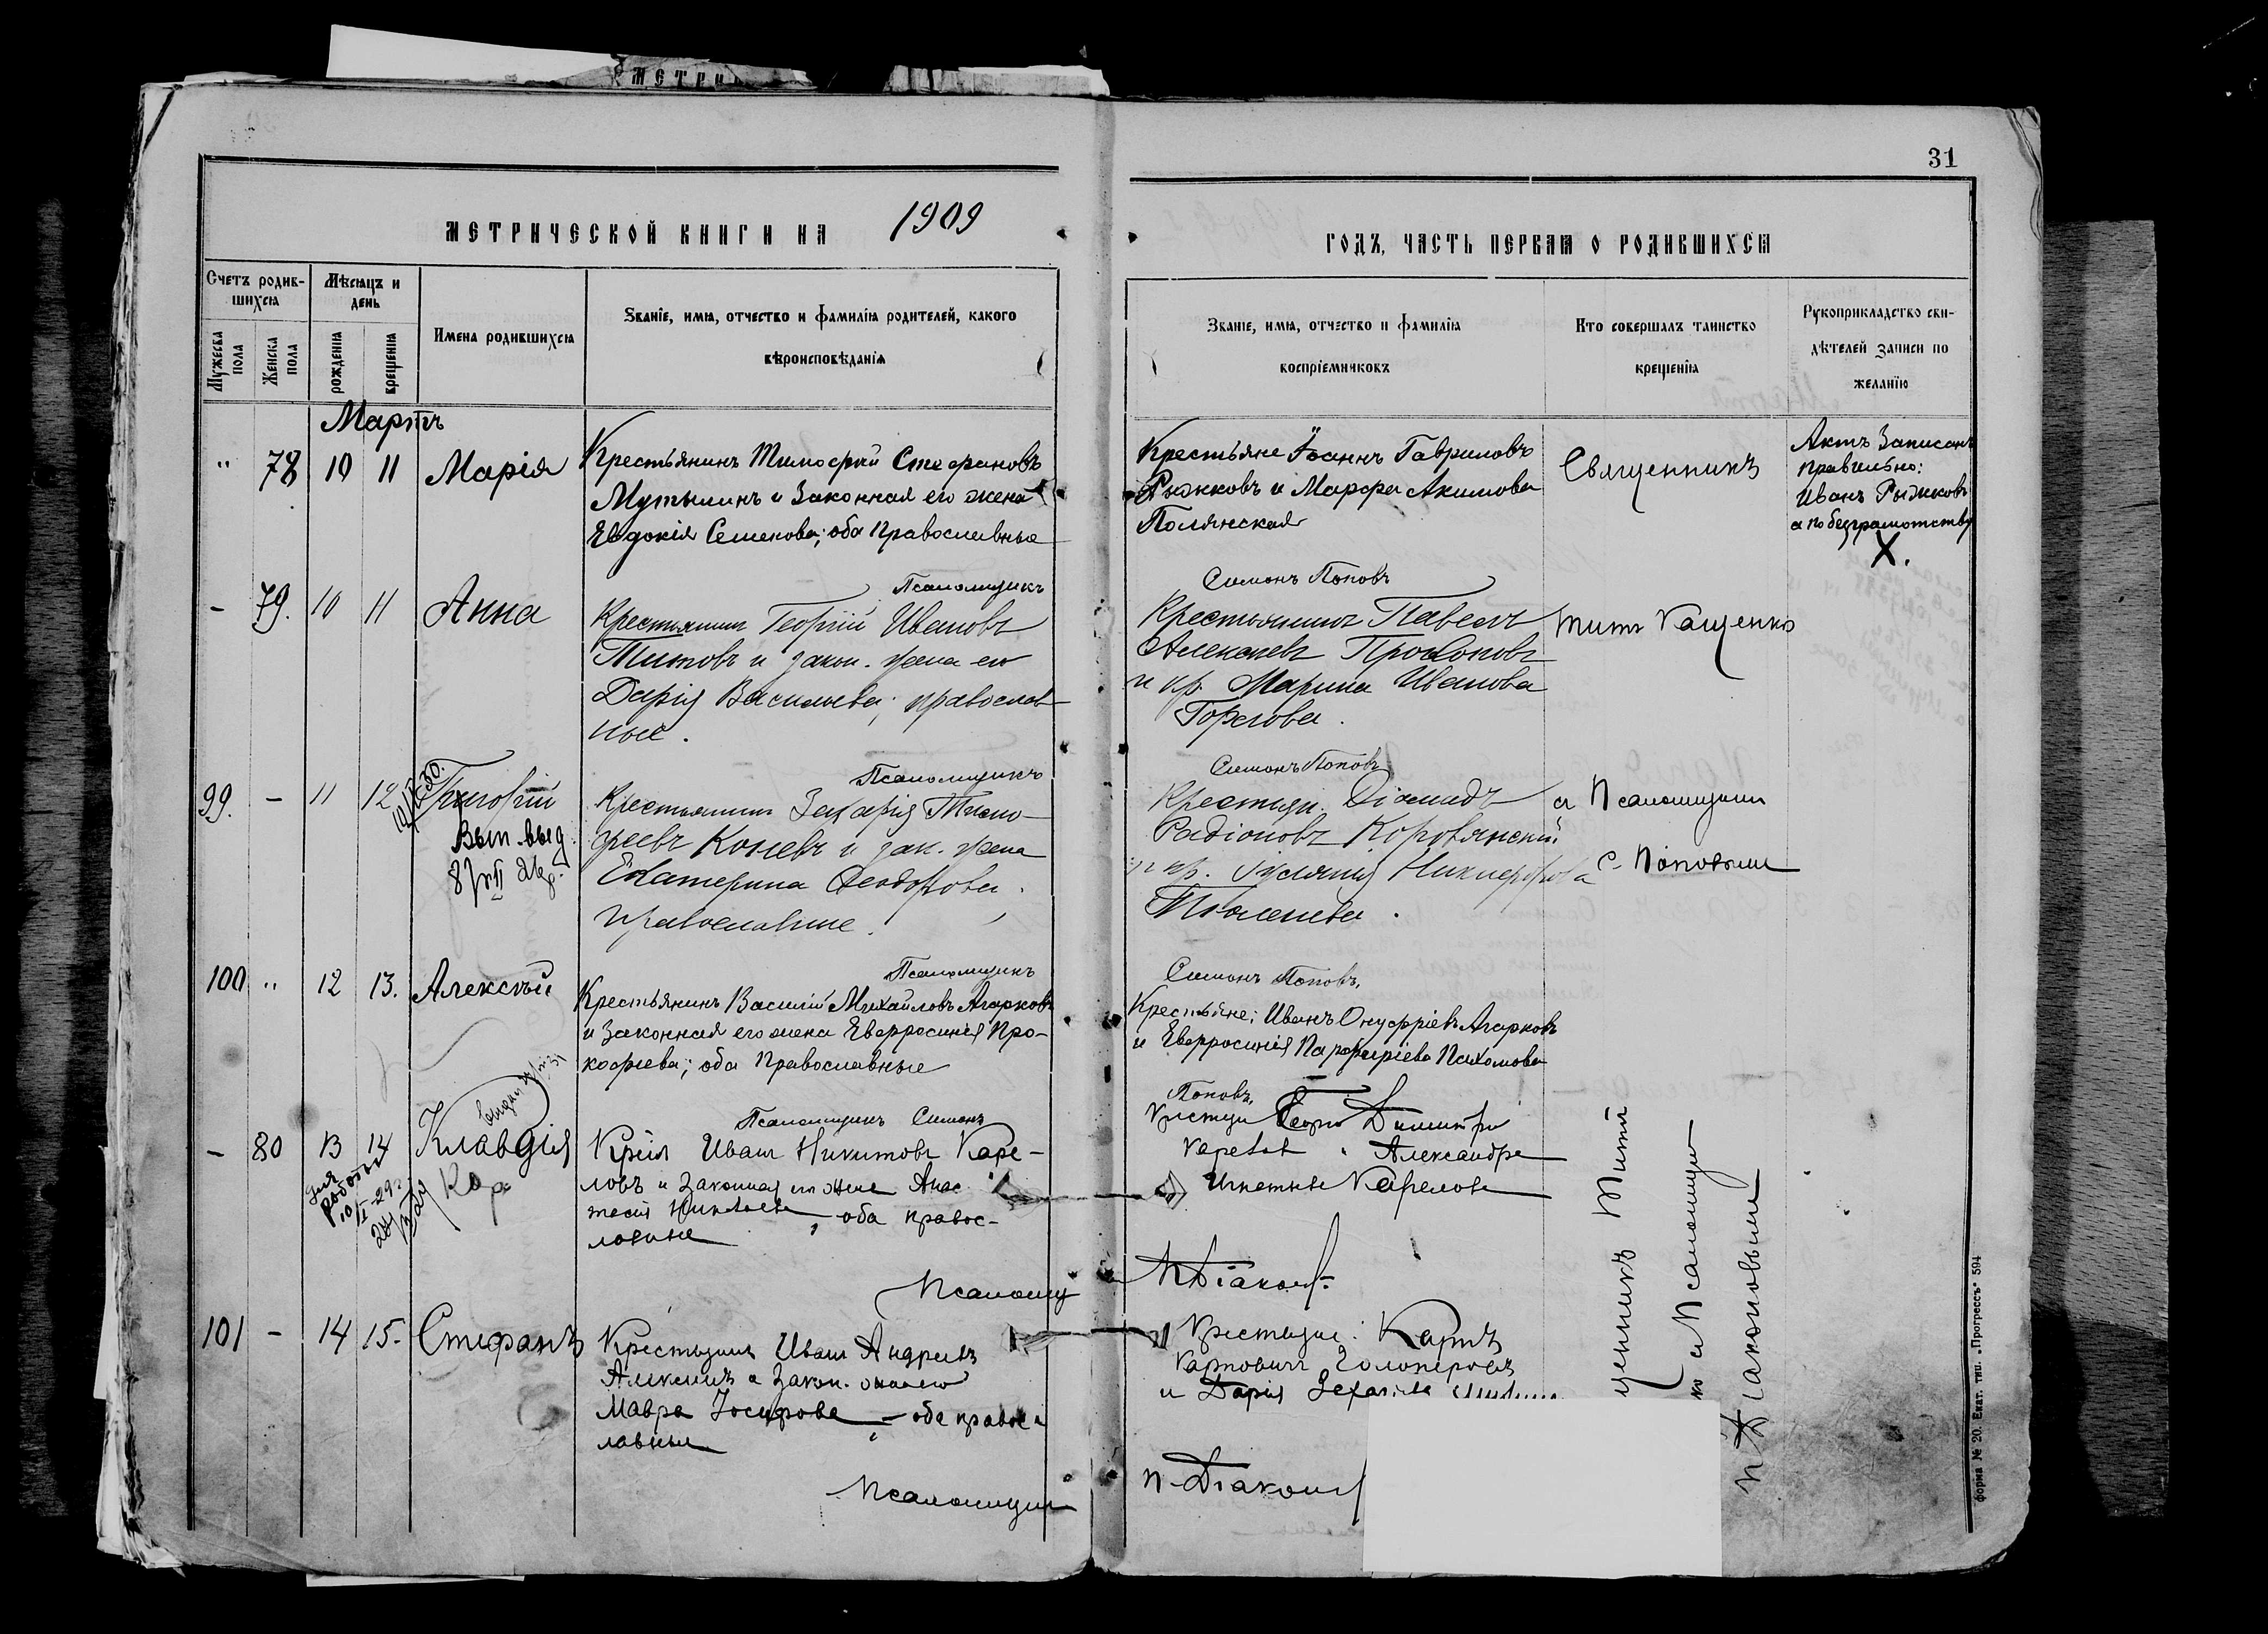 МЕТРИ
31
МЕТРИЧЕСКОЙ КНИГИ НА 1909
ГОДЪ, ЧАСТЬ ПЕРВАЯ О РОДИВШИХСЯ
Счетъ родив-
шихся
Мѣсяцъ и
день
Мужеска
пола
Женска
пола
рожденія
крещенія
Имена родившихся
Званіе, имя, отчество и фамилія родителей, какого
вѣроисповѣданія
Званіе, имя, отчество и фамилія
воспріемниковъ
Кто совершалъ таинство
крещенія
Рукоприкладство сви-
дѣтелей записи по
желанію
Мартъ
" 78 10 11 Марія
Крестьянинъ Тимофей Стефановъ
Мутылинъ и Законная его жена
Евдокія Семенова; оба Православные
Крестьяне Іоаннъ Гавриловъ
Рыжковъ и Марфа Акимова
Полянская
Священникъ
Актъ Записанъ
правильно:
Иванъ Рыжковъ
а по безграмотству
X.
Псаломщикъ Симонъ Поповъ
- 79. 10 11 Анна
Крестьянинъ Георгій Ивановъ
Титовъ и закон. жена его
Дарія Васильева; православ-
ные.
Крестьянинъ Павелъ
Алексѣевъ Прокоповъ
и кр. Марина Иванова
Горжова.
Титъ Кащенко
Псаломщикъ Симонъ Поповъ
99. - 11 12 Григорій
Вып. выд.
Крестьянинъ Захарія Тимо-
феевъ Коневъ и зак. жена
Екатерина Феодорова.
православные.
Крестьян. Діомидъ
Радіоновъ Коровянскій
и кр. Іуліанія Никифорова
Тюленева.
съ Псаломщикомъ
С. Поповымъ
Псаломщикъ Симонъ Поповъ.
100 " 12 13. Алексѣй
Крестьянинъ Василій Михайловъ Агарковъ
и Законная его жена Евфросинія Про-
кофіева; оба Православные
Крестьяне: Иванъ Онуфріевъ Агарковъ
и Евфросинія Парфиріева Пахомова
Псаломщикъ Симонъ Поповъ.
- 80 13 14 Клавдія
для
работы
10/II-29г.
Кар
Кр-нъ Иванъ Никитовъ Каре-
ловъ и Законная его жена Анас-
тасія Николаева, оба правос-
лавные
Георгій Димитрі
Александра
Игнатьева Карелова
Псаломщ
П Діаконъ
101 - 14 15. Стефанъ
Крестьянинъ Иванъ Андреевъ
и Закон. жена его
Мавра Іосифова - оба правос-
лавные
Крестьяне: Карпъ
Карповичъ
и Дарія
Псаломщикъ
П-Діаконъ
щенникъ Титъ
ко съ Псаломщи
П Діакономъ
форма № 20. Екат. тип. „Прогрессъ“ 594